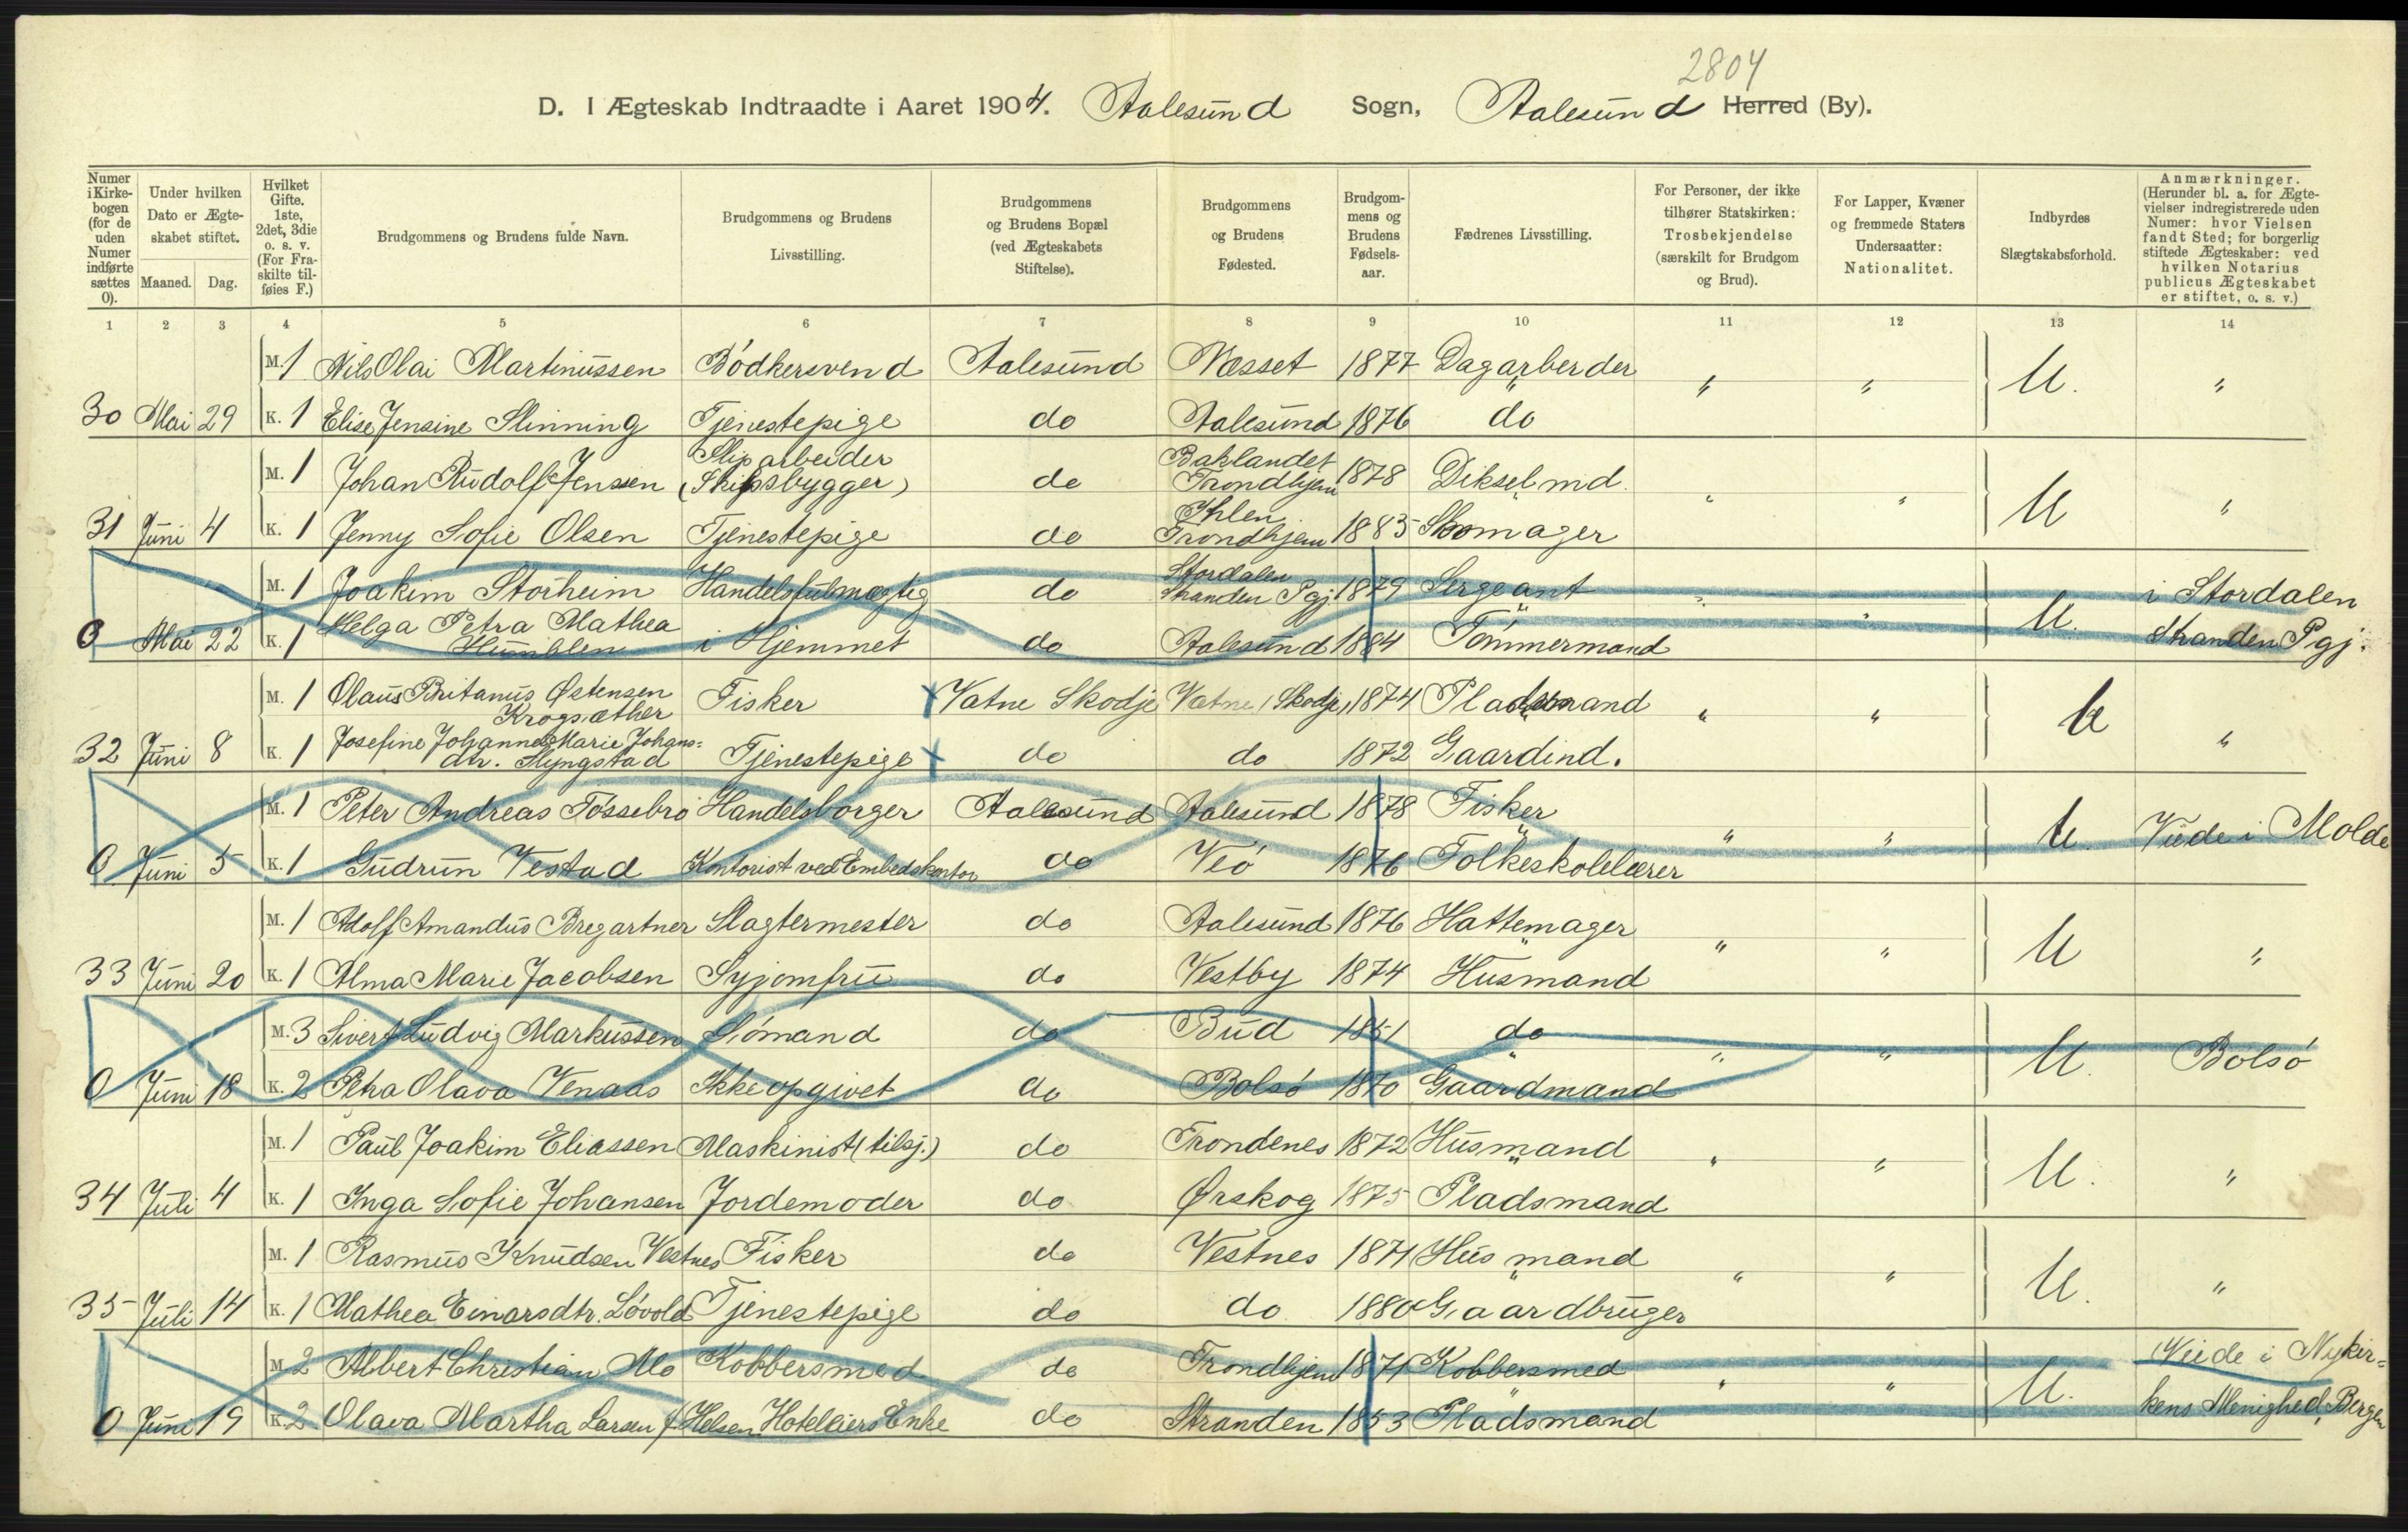 2804
D. I Ægteskab Indtraadte i Aaret 1904. Aalesund Sogn, Aalesund Herred (By).
Numer i Kirkebogen (for de uden Numer indførte sættes 0).
Under hvilken Dato er Ægteskabet stiftet.
Maaned. Dag.
Hvilket Gifte. 1ste, 2det, 3die o. s. v. (For Fraskilte tilføies F.)
Brudgommens og Brudens fulde Navn.
Brudgommens og Brudens Livsstilling.
Brudgommens og Brudens Bopæl (ved Ægteskabets Stiftelse).
Brudgommens og Brudens Fødested.
Brudgommens og Brudens Fødselsaar.
Fædrenes Livsstilling.
For Personer, der ikke tilhører Statskirken: Trosbekjendelse (særskilt for Brudgom og Brud).
For Lapper, Kvæner og fremmede Staters Undersaatter: Nationalitet.
Indbyrdes Slægtskabsforhold.
Anmærkninger. (Herunder bl. a. for Ægtevielser indregistrerede uden Numer: hvor Vielsen fandt Sted; for borgerlig stiftede Ægteskaber: ved hvilken Notarius publicus Ægteskabet er stiftet, o. s. v.)
1 2 3 4 5 6 7 8 9 10 11 12 13 14
M. 1 Nils Olai Martinussen Bödkersvend Aalesund Nesset 1877 Dagarbeider " " U. "
30 Mai 29 K. 1 Elise Jensine Slinning Tjenestepige do Aalesund 1876 do
M. 1 Johan Rudolf Jenssen Slip arbeider (Skibsbygger) do Baklandet Trondhjem 1878 Dikselmd. " " U "
31 Juni 4 K. 1 Jenny Sofie Olsen Tjenestepige do Ihlen Trondhjem 1883 Skomager
M. 1 Joakim Storheim Handelsfulmægtig do Stordalen Stranden Pgj. 1879 Sergeant " " U. i Stordalen
0 Mai 22 K. 1 Helga Petra Mathea Humblen i Hjemmet do Aalesund 1884 Tömmermand Stranden Pgj.
M. 1 Olaus Britanus Østensen Krogsæther Fisker Vatne Skodje Vatne (Skodje) 1874 Pladsmand " " U "
32 Juni 8 K. 1 Josefine Johanne Marie Johansdtr. Slyngstad Tjenestepige do do 1872 Gaardind.
M. 1 Peter Andreas Fossebrö Handelsborger Aalesund Aalesund 1878 Fisker " " U. Viede i Molde
0 Juni 5 K. 1 Gudrun Vestad Kontorist ved Embedskontor do Veö 1876 Folkeskolelærer
M. 1 Adolf Amandus Bregartner Slagtermester do Aalesund 1876 Hattemager " " U "
33 Juni 20 K. 1 Alma Marie Jacobsen Syjomfru do Vestby 1874 Husmand
M. 3 Sivert Ludvig Markussen Sömand do Bud 1851 do " " U. Bolsö
0 Juni 18 K. 2 Petra Olava Venaas Ikke opgivet do Bolsö 1870 Gaardmand
M. 1 Paul Joakim Eliassen Maskinist (tilsj.) do Trondenes 1872 Husmand " " U. "
34 Juli 4 K. 1 Inga Sofie Johansen Jordemoder do Ørskog 1875 Pladsmand
M. 1 Rasmus Knudsen Vestnes Fisker do Vestnes 1871 Husmand " " U. "
35 Juli 14 K. 1 Mathea Einarsdtr. Lövold Tjenestepige do do 1880 Gaardbruger
M. 2 Albert Christian Mo Kobbersmed do Trondhjem 1871 Kobbersmed " " U. Viede i Nykir=
0 Juni 19 K. 2 Olava Martha Larsen f. Helsem Hoteleiers Enke do Stranden 1853 Pladsmand kens Menighed, Bergen